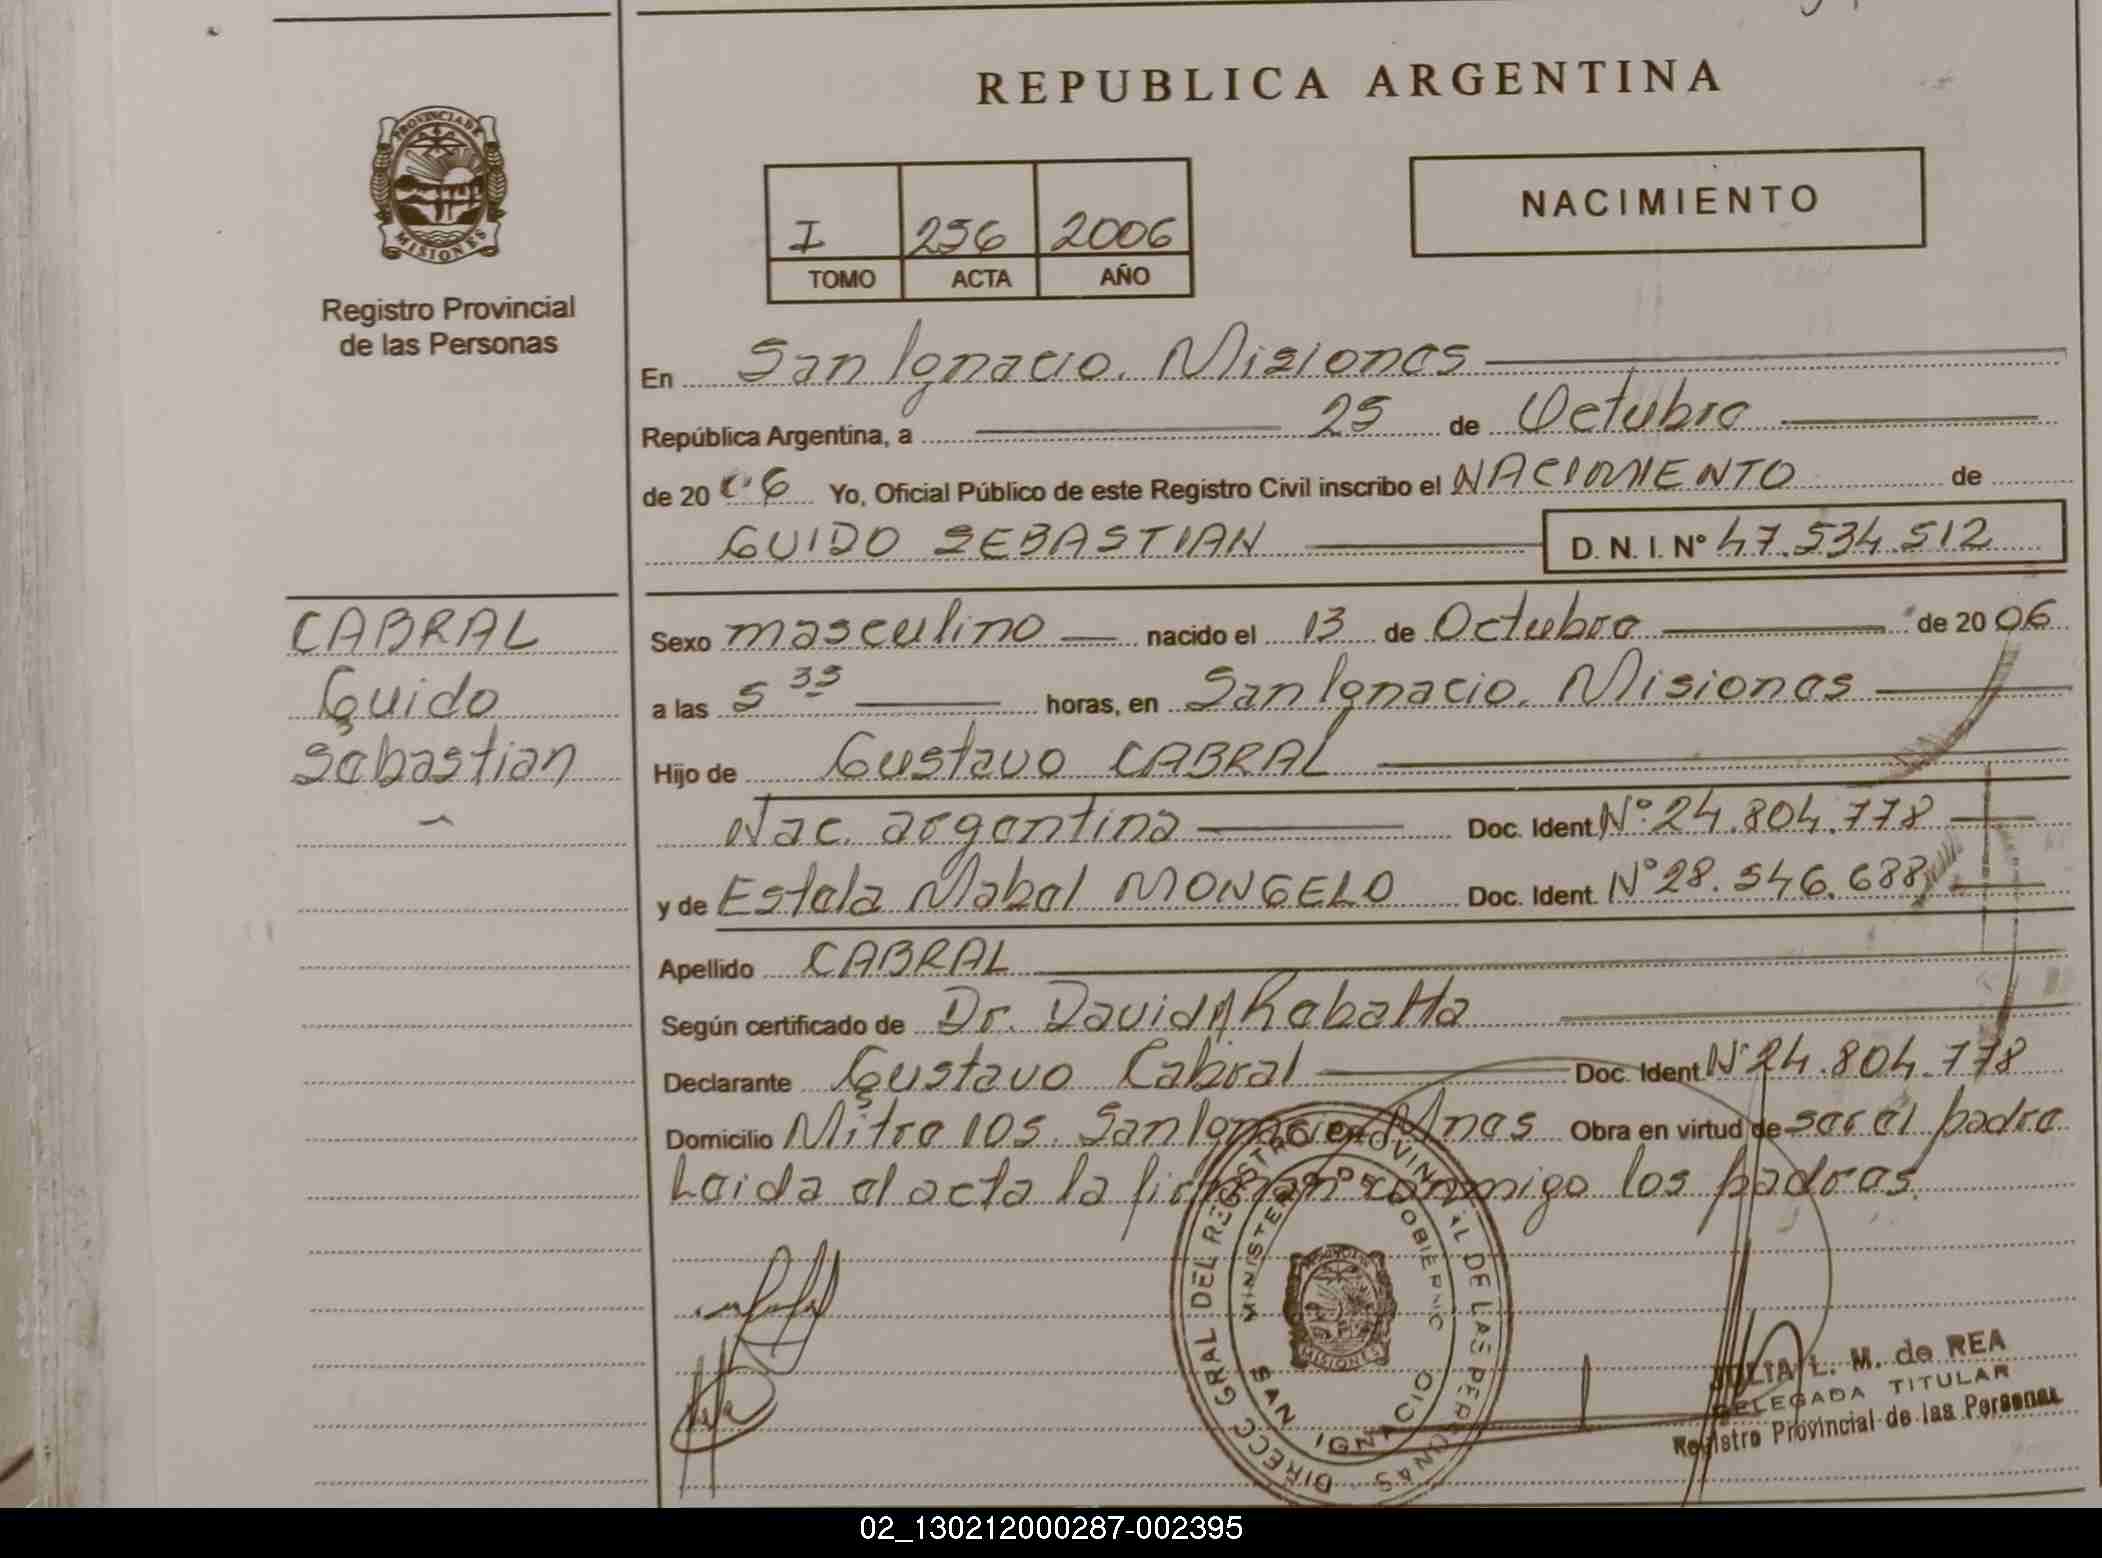 REPUBLICA ARGENTINA
PROVINCIA DE MISIONES
Registro Provincial
de las Personas
NACIMIENTO
I 256 2006
TOMO ACTA AÑO
En San Ignacio. Misiones
República Argentina, a 25 de Octubre
de 2006 Yo, Oficial Público de este Registro Civil inscribo el NACIMIENTO de
GUIDO SEBASTIAN D. N. I. Nº 47.534.512
CABRAL
Guido
Sebastian
Sexo masculino nacido el 13 de Octubre de 2006
a las 5 35 horas, en San Ignacio. Misiones
Hijo de Gustavo CABRAL
Nac. argentina Doc. Ident. Nº 24.804.778
y de Estela Mabel MONGELO Doc. Ident. Nº 28.546.688
Apellido CABRAL
Según certificado de Dr. David Rebatta
Declarante Gustavo Cabral Doc. Ident. Nº 24.804.778
Domicilio Mitre 105. San Ignacio Mnes Obra en virtud de ser el padre
Leida el acta la firman conmigo los padres.
DIRECC GRAL DEL REGISTRO PROVINCIAL DE LAS PERSONAS
MINISTERIO DE GOBIERNO
MISIONES
SAN IGNACIO
JULIA L. M. de REA
DELEGADA TITULAR
Registro Provincial de las Personas
02_130212000287-002395